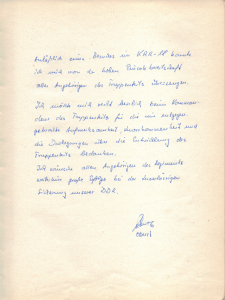 Anläßlich eines Besuches im KRR-18 konnte
ich mich von der hohen Einsatzbereitschaft
aller Angehörigen des Truppenteils überzeugen.
Ich möchte mich recht herzlich beim Komman-
deur des Truppenteils für die mir entgegen-
gebrachte Aufmerksamkeit, und
die Darlegungen über die Entwicklung des
Truppenteils bedanken.
Ich wünsche allen Angehörigen des Regiments
weiterhin große Erfolge bei der zuverlässigen
Sicherung unserer DDR.
Oberst